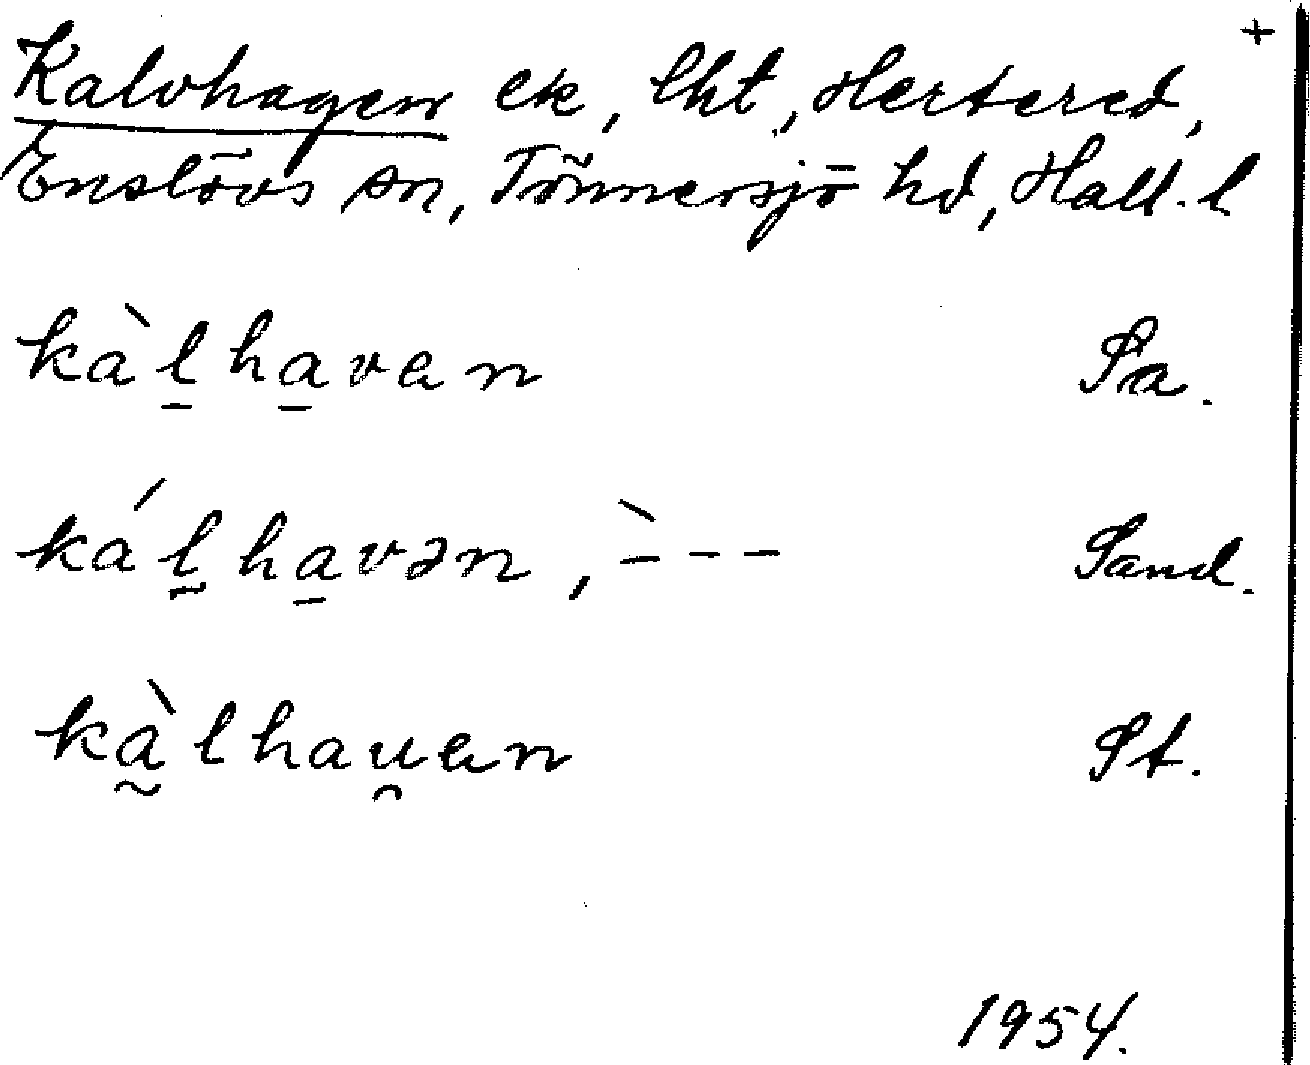 +
Kalvhagen ek, lht, Hertered,
Enslövs sn, Tönnersjö hd, Hall. l
kàl̠ha̠van Sa.
kál̠ha̠vən, `--- Sand.
kà̰lhau̯an St.
1954.